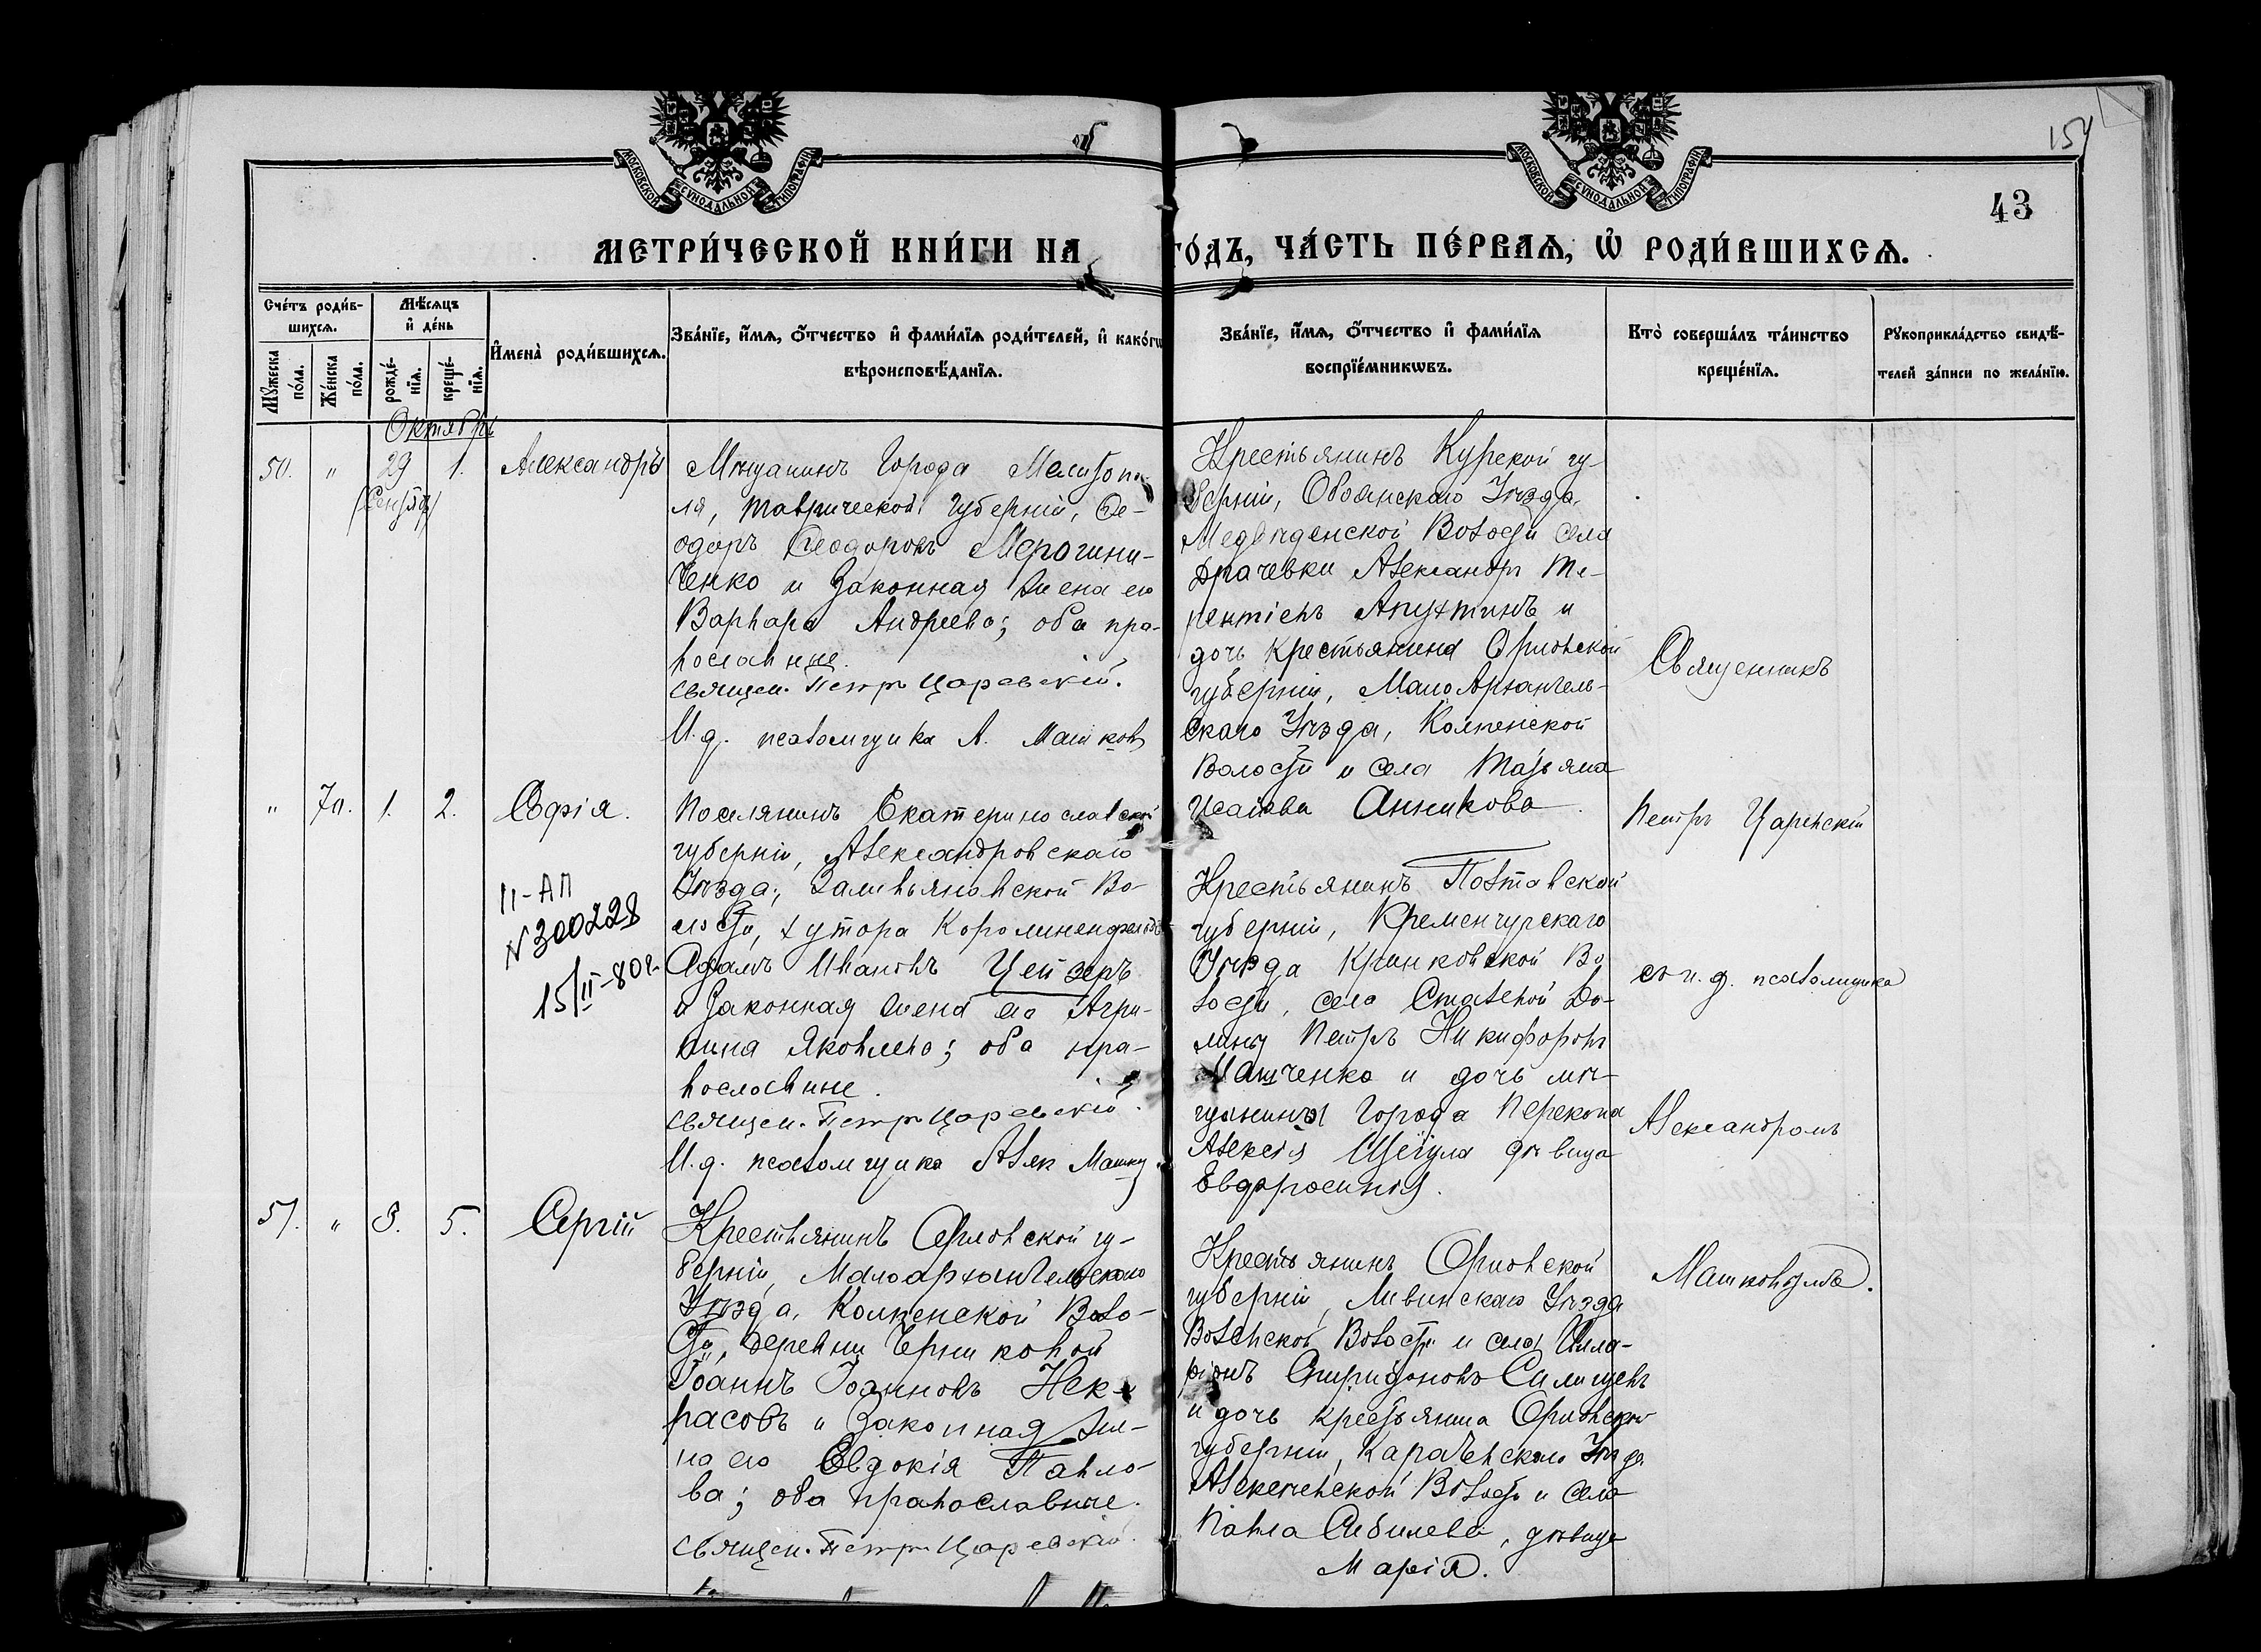 МОСКОВСКОЙ СУНОДАЛЬНОЙ ТИПОГРАФІИ
МОСКОВСКОЙ СУНОДАЛЬНОЙ ТИПОГРАФІИ
154
43
МЕТРИ́ЧЕСКОЙ КНИ́ГИ НА ГО́ДЪ, ЧА́СТЬ ПЕ́РВАѦ, Ѡ РОДИ́ВШИХСѦ.
Сче́тъ роди́в-
шихсѧ.
Мꙋжеска по́ла.
Же́нска по́ла.
Мѣ́сяцъ и де́нь
рожде́-
нїѧ.
креще́-
нїѧ.
Имена̀ роди́вшихсѧ.
Зва́нїе, и́мѧ, ѻ́тчество и фами́лїѧ роди́телей, и како́гѡ
вѣроисповѣ́данїѧ.
Зва́нїе, и́мѧ, ѻ́тчество и фами́лїѧ
воспрїе́мникѡвъ.
Кто̀ соверша́лъ та́инство
креще́нїѧ.
Рꙋкоприкла́дство свидѣ́-
телей за́писи по жела́нїю.
Октябрь
50. " 29 1. Александръ
(Сентяб)
Мѣщанинъ Города Мелитопо-
ля, Таврической губерніи, Ѳе-
одоръ Ѳеодоровъ
ченко и законная жена его
Варвара Андреева; оба пра-
вославные.
Священ. Петръ Царевскій.
И. д. псаломщика А. Машковъ
Крестьянинъ Курской гу-
берніи, Обоянскаго Уѣзда,
Медвѣденской Волости села
Драчевки Александръ Те-
рентіевъ Апухтинъ и
дочь крестьянина Орловской
губерніи, Малоархангель-
скаго Уѣзда, Колпенской
Волости и села Татьяна
Исаіева Анникова.
" 70. 1. 2. Софія.
II-АП
N 300228
15/II-80г.
Поселянинъ Екатеринославской
губерніи, Александровскаго
Уѣзда, Во-
лости, хутора Каролиненфельдъ
Адамъ Ивановъ Цейзеръ
и законная жена его Агри-
пина Яковлева; оба пра-
вославные.
Священ. Петръ Царевскій.
И. д. псаломщика Алек Машков
Крестьянинъ Полтавской
губерніи, Кременчугскаго
Уѣзда Криковской Во
лости, села
лины Петръ Никифоровъ
Мащенко и дочь мѣ-
щанина Города Перекопа
Алексія Щегула дѣвица
Евфросинія.
51. " 3. 5. Сергій
Крестьянинъ Орловской гу-
берніи, Малоархангельскаго
Уѣзда, Колпенской Воло-
сти, деревни Черниковой
Іоаннъ Іоанновъ Нек-
расовъ и законная же-
на его Евдокія Павло-
ва; оба православные.
Священ. Петръ Царевскій.
Крестьянинъ Орловской
губерніи, Ливинскаго Уѣзда
Волости и села Илла-
ріонъ Спиридоновъ
и дочь крестьянина Орловской
губерніи, Карачевскаго Уѣзда
Волости и села
Павла дѣвица
Марія.
Священникъ
Петръ Царевскій
съ и. д. псаломщика
Александромъ
Машковымъ.